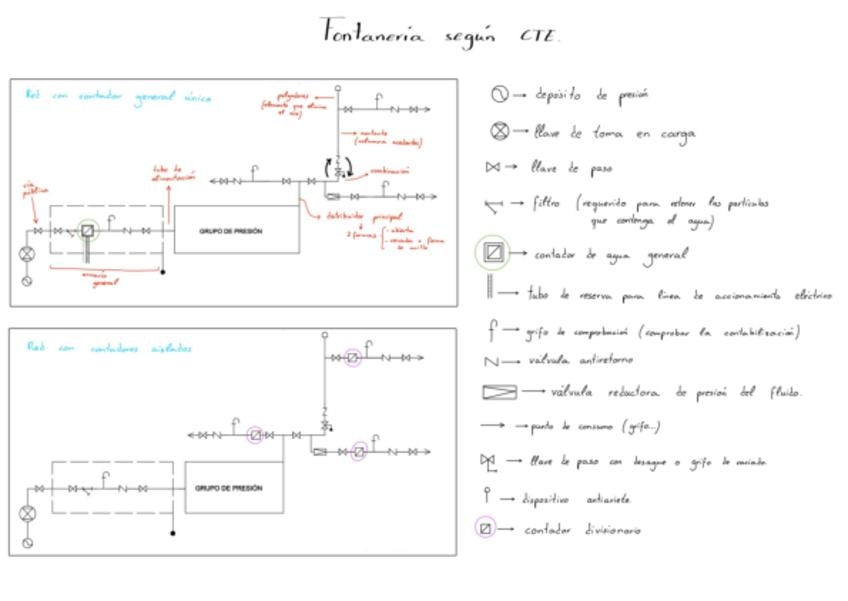 Fontanería según CTE.
Red con contador general único
purgadores
(elemento que elimina
el aire)
montante
(columnas ascendentes)
combinación
tubo de
alimentación
vía
pública
distribuidor principal
2 formas
- abierta
- cerrada o forma
de anillo
GRUPO DE PRESIÓN
armario
general
Red con contadores aislados
GRUPO DE PRESIÓN
depósito de presión
llave de toma en carga
llave de paso
filtro (requerido para retener las partículas
que contenga el agua)
contador de agua general
tubo de reserva para línea de accionamiento eléctrico
grifo de comprobación (comprobar la contabilización)
válvula antiretorno
válvula reductora de presión del fluido.
punto de consumo (grifo...)
llave de paso con desagüe o grifo de vaciado.
dispositivo antiariete.
contador divisionario